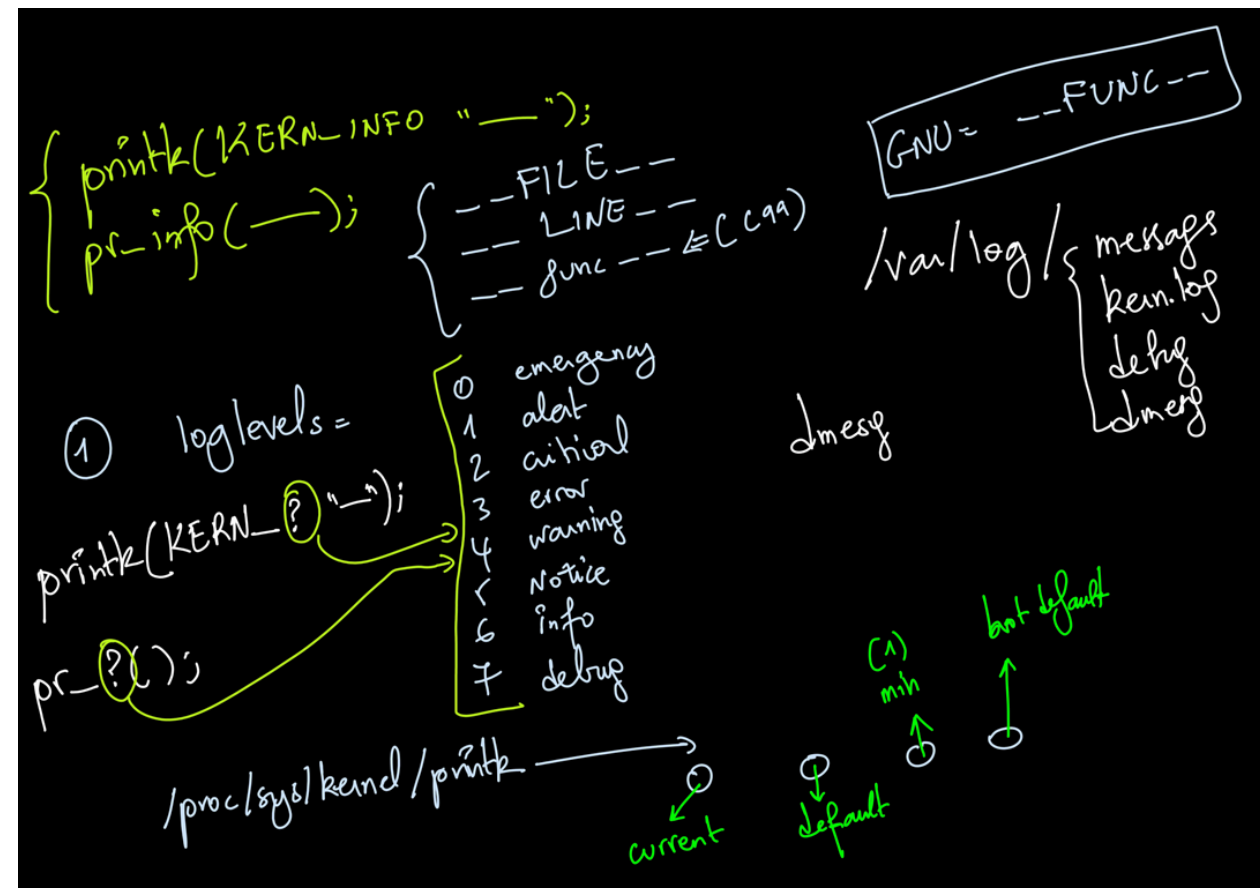 printk(KERN_INFO "__");
pr_info(__);
__FILE__
__LINE__
__func__ ⇐ (C99)
GNU= __FUNC__
/var/log/
messags
kern.log
debug
dmesg
dmesg
① loglevels=
0 emergency
1 alert
2 critical
3 error
4 warning
5 Notice
6 info
7 debug
printk(KERN_? "__");
pr_?();
/proc/sys/kernel/printk
current
default
(1)
min
boot default